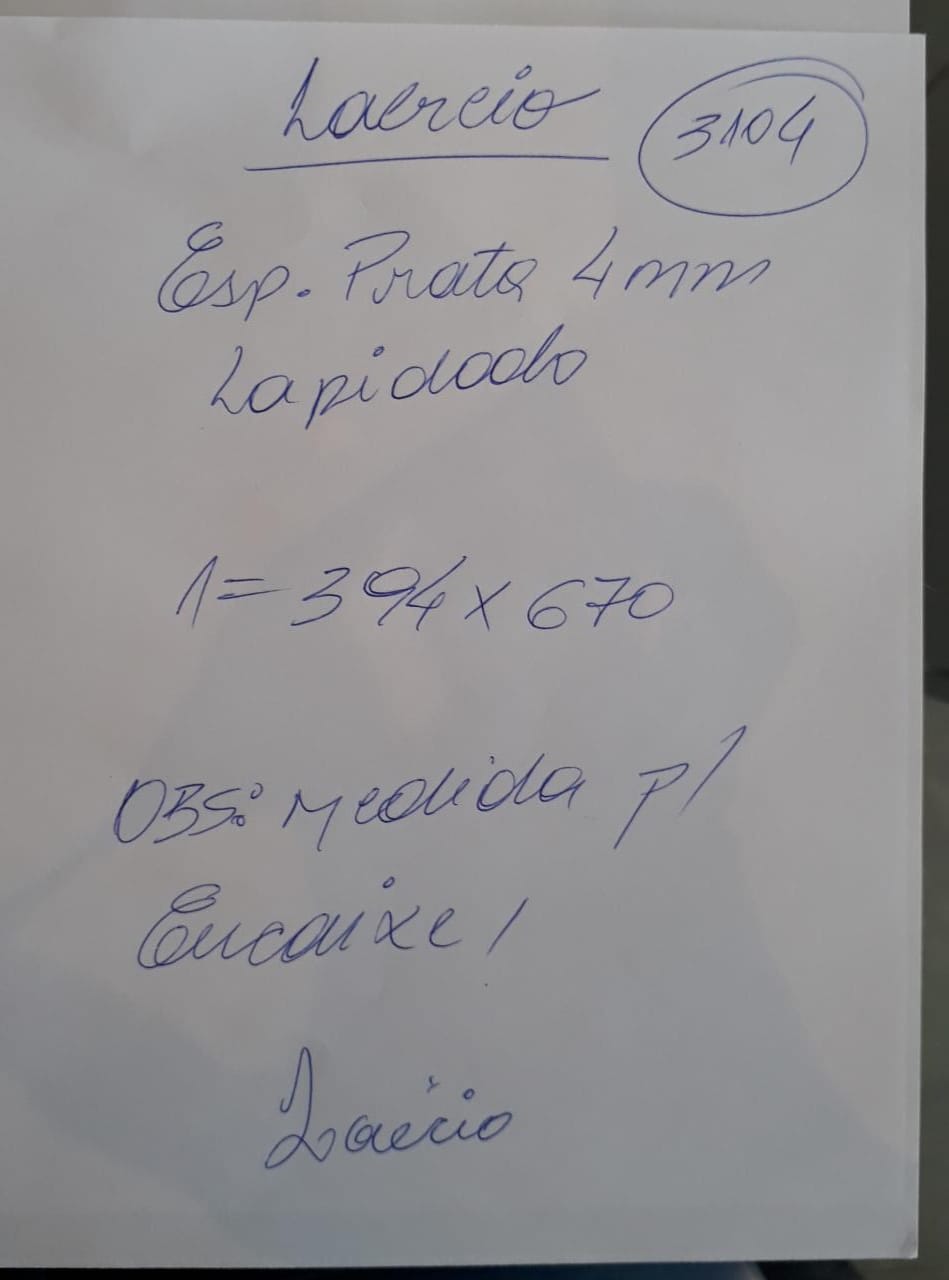 Laercio 3104
Esp. Prata 4mm
Lapidado
1= 394 x 670
OBS: Medida p/
Encaixe!
Laércio